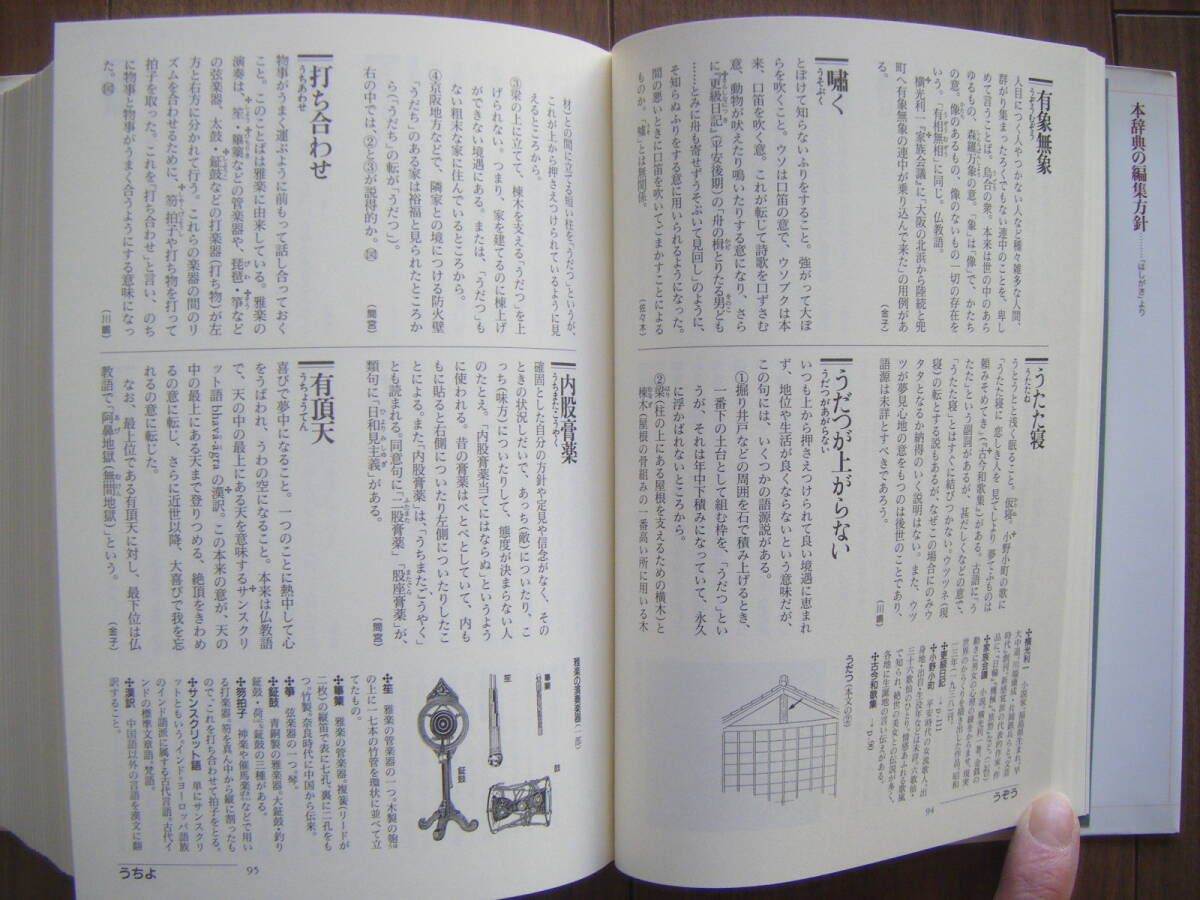 本辞典の編集方針……「はしがき」より
有象無象
うぞうむぞう
人目につく人やつかない人など種々雑多な人間、
群がり集まったろくでもない連中のことを、卑し
めて言うことば。烏合の衆。本来は世の中のあら
ゆるもの、森羅万象の意。「象」は「像」で、かたち
の意。像のあるもの、像のないもの一切の存在を
いう。「有相無相」に同じ。仏教語。
横光利一『家族会議』に、「大阪の北浜から陸続と兜
町へ有象無象の連中が乗り込んで来た」の用例があ
る。
（金子）
嘯く
うそぶく
とぼけて知らないふりをすること。強がって大ぼ
らを吹くこと。ウソは口笛の意で、ウソブクは本
来、口笛を吹く意。これが転じて詩歌を口ずさむ
意、動物が吠えたり鳴いたりする意になり、さら
に『更級日記』（平安後期）の「舟の楫とりたる男ども
……とみに舟も寄せずうそぶいて見回し」のように、
そ知らぬふりをする意に用いられるようになった。
間の悪いときに口笛を吹いてごまかすことによる
ものか。「嘘」とは無関係。
（佐々木）
うたた寝
うたたね
うとうとと浅く眠ること。仮寝。小野小町の歌に
「うたた寝に 恋しき人を 見てしより 夢てふものは
頼みそめてき」（『古今和歌集』）がある。古語に、う
たたという副詞があるが、甚だしくなどの意で、
「うたた寝」とはすぐに結びつかない。ウツツネ（現
寝）の転とする説もあるが、なぜこの場合にのみウ
タタとなるか納得のいく説明はない。また、ウツ
ツが夢見心地の意をもつのは後世のことであり、
語源は未詳とすべきであろう。
（川嶋）
うだつが上がらない
うだつがあがらない
いつも上から押さえつけられて良い境遇に恵まれ
ず、地位や生活が良くならないという意味だが、
この句には、いくつかの語源説がある。
①掘り井戸などの周囲を石で積み上げるとき、
一番下の土台として組む枠を、「うだつ」とい
うが、それは年中下積みになっていて、永久
に浮かばれないところから。
②梁（柱の上にある屋根を支えるための横木）と
棟木（屋根の骨組みの一番高い所に用いる木
✣横光利一
✣家族会議
✣更級日記 →p.111
✣小野小町
✣古今和歌集 →p.90
うだつ（本文の②）
94
うぞう
材）との間に立てる短い柱を、「うだつ」というが、
これが上から押さえつけられているように見
えるところから。
③梁の上に立て、棟木を支える「うだつ」を上
げられない。つまり、家を建てるのに棟上げ
ができない境遇にある。または、「うだつ」も
ない粗末な家に住んでいるところから。
④京阪地方などで、隣家との境につける防火壁
「うだち」のある家は裕福と見られたところか
ら（「うだち」の転が「うだつ」）。
右の中では、②と③が説得的か。図
（間宮）
打ち合わせ
うちあわせ
物事がうまく運ぶように前もって話し合っておく
こと。このことばは雅楽に由来している。雅楽の
演奏は、笙・篳篥などの管楽器や、琵琶・箏など
の弦楽器、太鼓・鉦鼓などの打楽器（打ち物）が左
方と右方に分かれて行う。これらの楽器の間のリ
ズムを合わせるために、笏拍子や打ち物を打って
拍子を取った。これを「打ち合わせ」と言い、のち
に物事と物事がうまく合うようにする意味になっ
た。図
（川嶋）
内股膏薬
うちまたこうやく
確固とした自分の方針や定見や信念がなく、その
ときの状況しだいで、あっち（敵）についたり、こ
っち（味方）についたりして、態度が決まらない人
のたとえ。「内股膏薬当てにはならぬ」というよう
に使われる。昔の膏薬はべとべとしていて、内も
もに貼ると右側についたり左側についたりしたこ
とによる。また、「内股膏薬」は、「うちまたごうやく」
とも読まれる。同意句に「二股膏薬」「股座膏薬」が、
類句に、「日和見主義」がある。
（間宮）
有頂天
うちょうてん
喜びで夢中になること。一つのことに熱中して心
をうばわれ、うわの空になること。本来は仏教語
で、天の中の最上にある天を意味するサンスクリ
ット語 bhavā-āgra の漢訳。この本来の意が、天の
中の最上にある天まで登りつめる、絶頂をきわめ
るの意に転じ、さらに近世以降、大喜びで我を忘
れるの意に転じた。
なお、最上位である有頂天に対し、最下位は仏
教語で「阿鼻地獄（無間地獄）」という。
（金子）
雅楽の演奏楽器（一部）
篳篥
笙
鼓
鉦鼓
✣笙 雅楽の管楽器の一つ。木製の匏
の上に一七本の竹管を環状に並べて立
てたもの。
✣篳篥 雅楽の管楽器。複簧（リードが
二枚）の縦笛で表に七孔、裏に二孔をも
つ。竹製。奈良時代に中国から伝来。
✣箏 弦楽器の一つ。琴。
✣鉦鼓 青銅製の雅楽器。大鉦鼓・釣り
鉦鼓・荷い鉦鼓の三種がある。
✣笏拍子 神楽や催馬楽などで用い
る打楽器。笏を真ん中から縦に割ったも
ので、これを打ち合わせて拍子をとる。
✣サンスクリット語 単にサンスクリ
ットともいう。インド・ヨーロッパ語族
のインド語派に属する古代言語。古代イ
ンドの標準文章語。梵語。
✣漢訳 中国語以外の言語を漢文に翻
訳すること。
うちよ
95